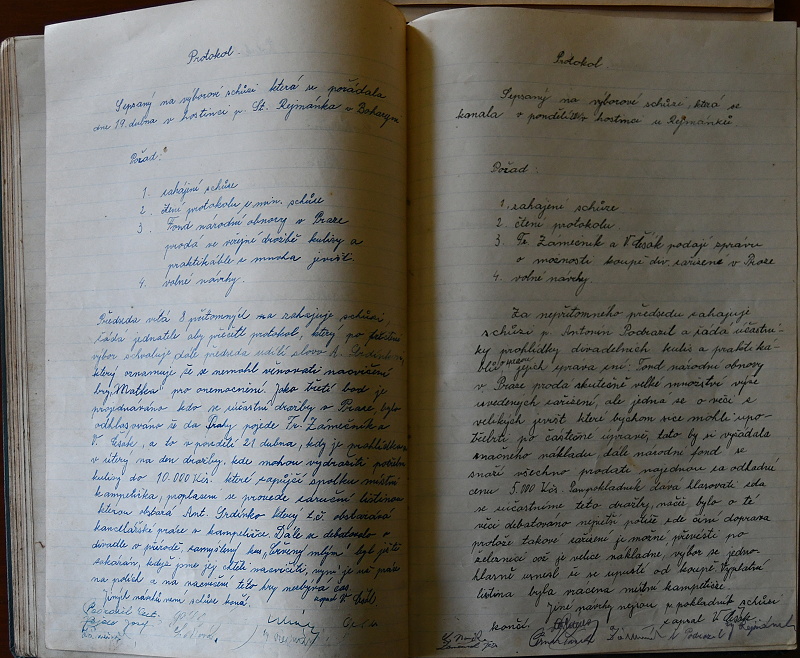 Protokol.
Sepsaný na výborové schůzi která se pořádala
dne 19. dubna v hostinci p. St. Rejmánka v
Pořad:
1. zahájení schůze
2. čtení protokolu z min. schůze
3. Fond národní obnovy v Praze
prodá ve veřejné dražbě kulisy a
praktikáble z mnoha jevišť.
4. volné návrhy.
Předseda vítá 8 přítomných na zahajuje schůzi,
žádá jednatele aby přečetl protokol, který po
výbor schvaluje dále předseda udílí slovo A.
který oznamuje že se nemohl věnovati nacvičení
hry "Matka" pro onemocnění. Jako třetí bod je
projednáváno kdo se účastní dražby v Praze, bylo
odhlasováno že do Prahy pojede Fr. Zámečník a
V. Česák, a to v pondělí 21 dubna, kdy je prohlídka
v úterý na den dražby, kde mohou vydražiti potřebné
kulisy do 10.000 Kčs. které zapůjčí spolku místní
kampelička, proplacení se provede záruční listinou
kterou obstará Ant. Srdínko který t.č. obstarává
kancelářské práce v kampeličce. Dále se debatovalo o
divadle v přírodě, zamýšlený kus, "Červený mlýn" byl ještě
sehrán, když jsme jej chtěli nacvičiti, nyní je už práce
na polích a na nacvičení této hry nezbývá čas.
Jiných návrhů není schůze končí. zapsal V. Česák
Protokol
Sepsaný na výborové schůzi, která se
konala v pondělí hostinci u Rejmánků.
Pořad:
1. zahájení schůze
2. čtení protokolu
3. Fr. Zámečník a V. Česák podají zprávu
o možnosti koupě div. zařízení v Praze
4. volné návrhy.
Za nepřítomného předsedu zahajuje
schůzi p. Antonín Podrazil a žádá účastní-
ky prohlídky divadelních kulis a praktiká-
blů o zprávu, jejich zpráva zní: Fond národní obnovy
v Praze prodá skutečně velké množství výše
uvedených zařízení, ale jedná se o věci z
velikých jevišť které bychom sice mohli upo-
třebiti po částečné úpravě, tato by si vyžádala
značného nákladu, dále národní fond se
snaží všechno prodati najednou za odhadní
cenu 5.000 Kčs. dává hlasovati zda
se účastníme této dražby, načež bylo o té
věci debatováno největší potíže zde činí doprava
protože takové zařízení je možné převésti po
železnici což je velice nákladné, výbor se jedno-
hlasně usnesl že se upustí od koupě.
listina byla vrácena místní kampeličce.
Jiné návrhy nejsou p. pokladník schůzi
končí. zapsal V. Česák